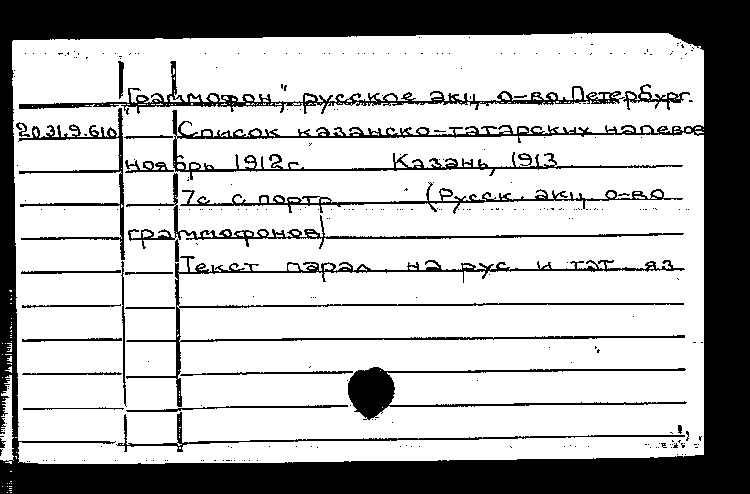 "Граммофон", русское акц. о-во. Петербург.
20.31.9.610 Список казанско-татарских напевов
ноябрь 1912г. Казань, 1913
7с с портр. (Русск. акц. о-во
граммофонов)
Текст парал. на рус. и тат. яз